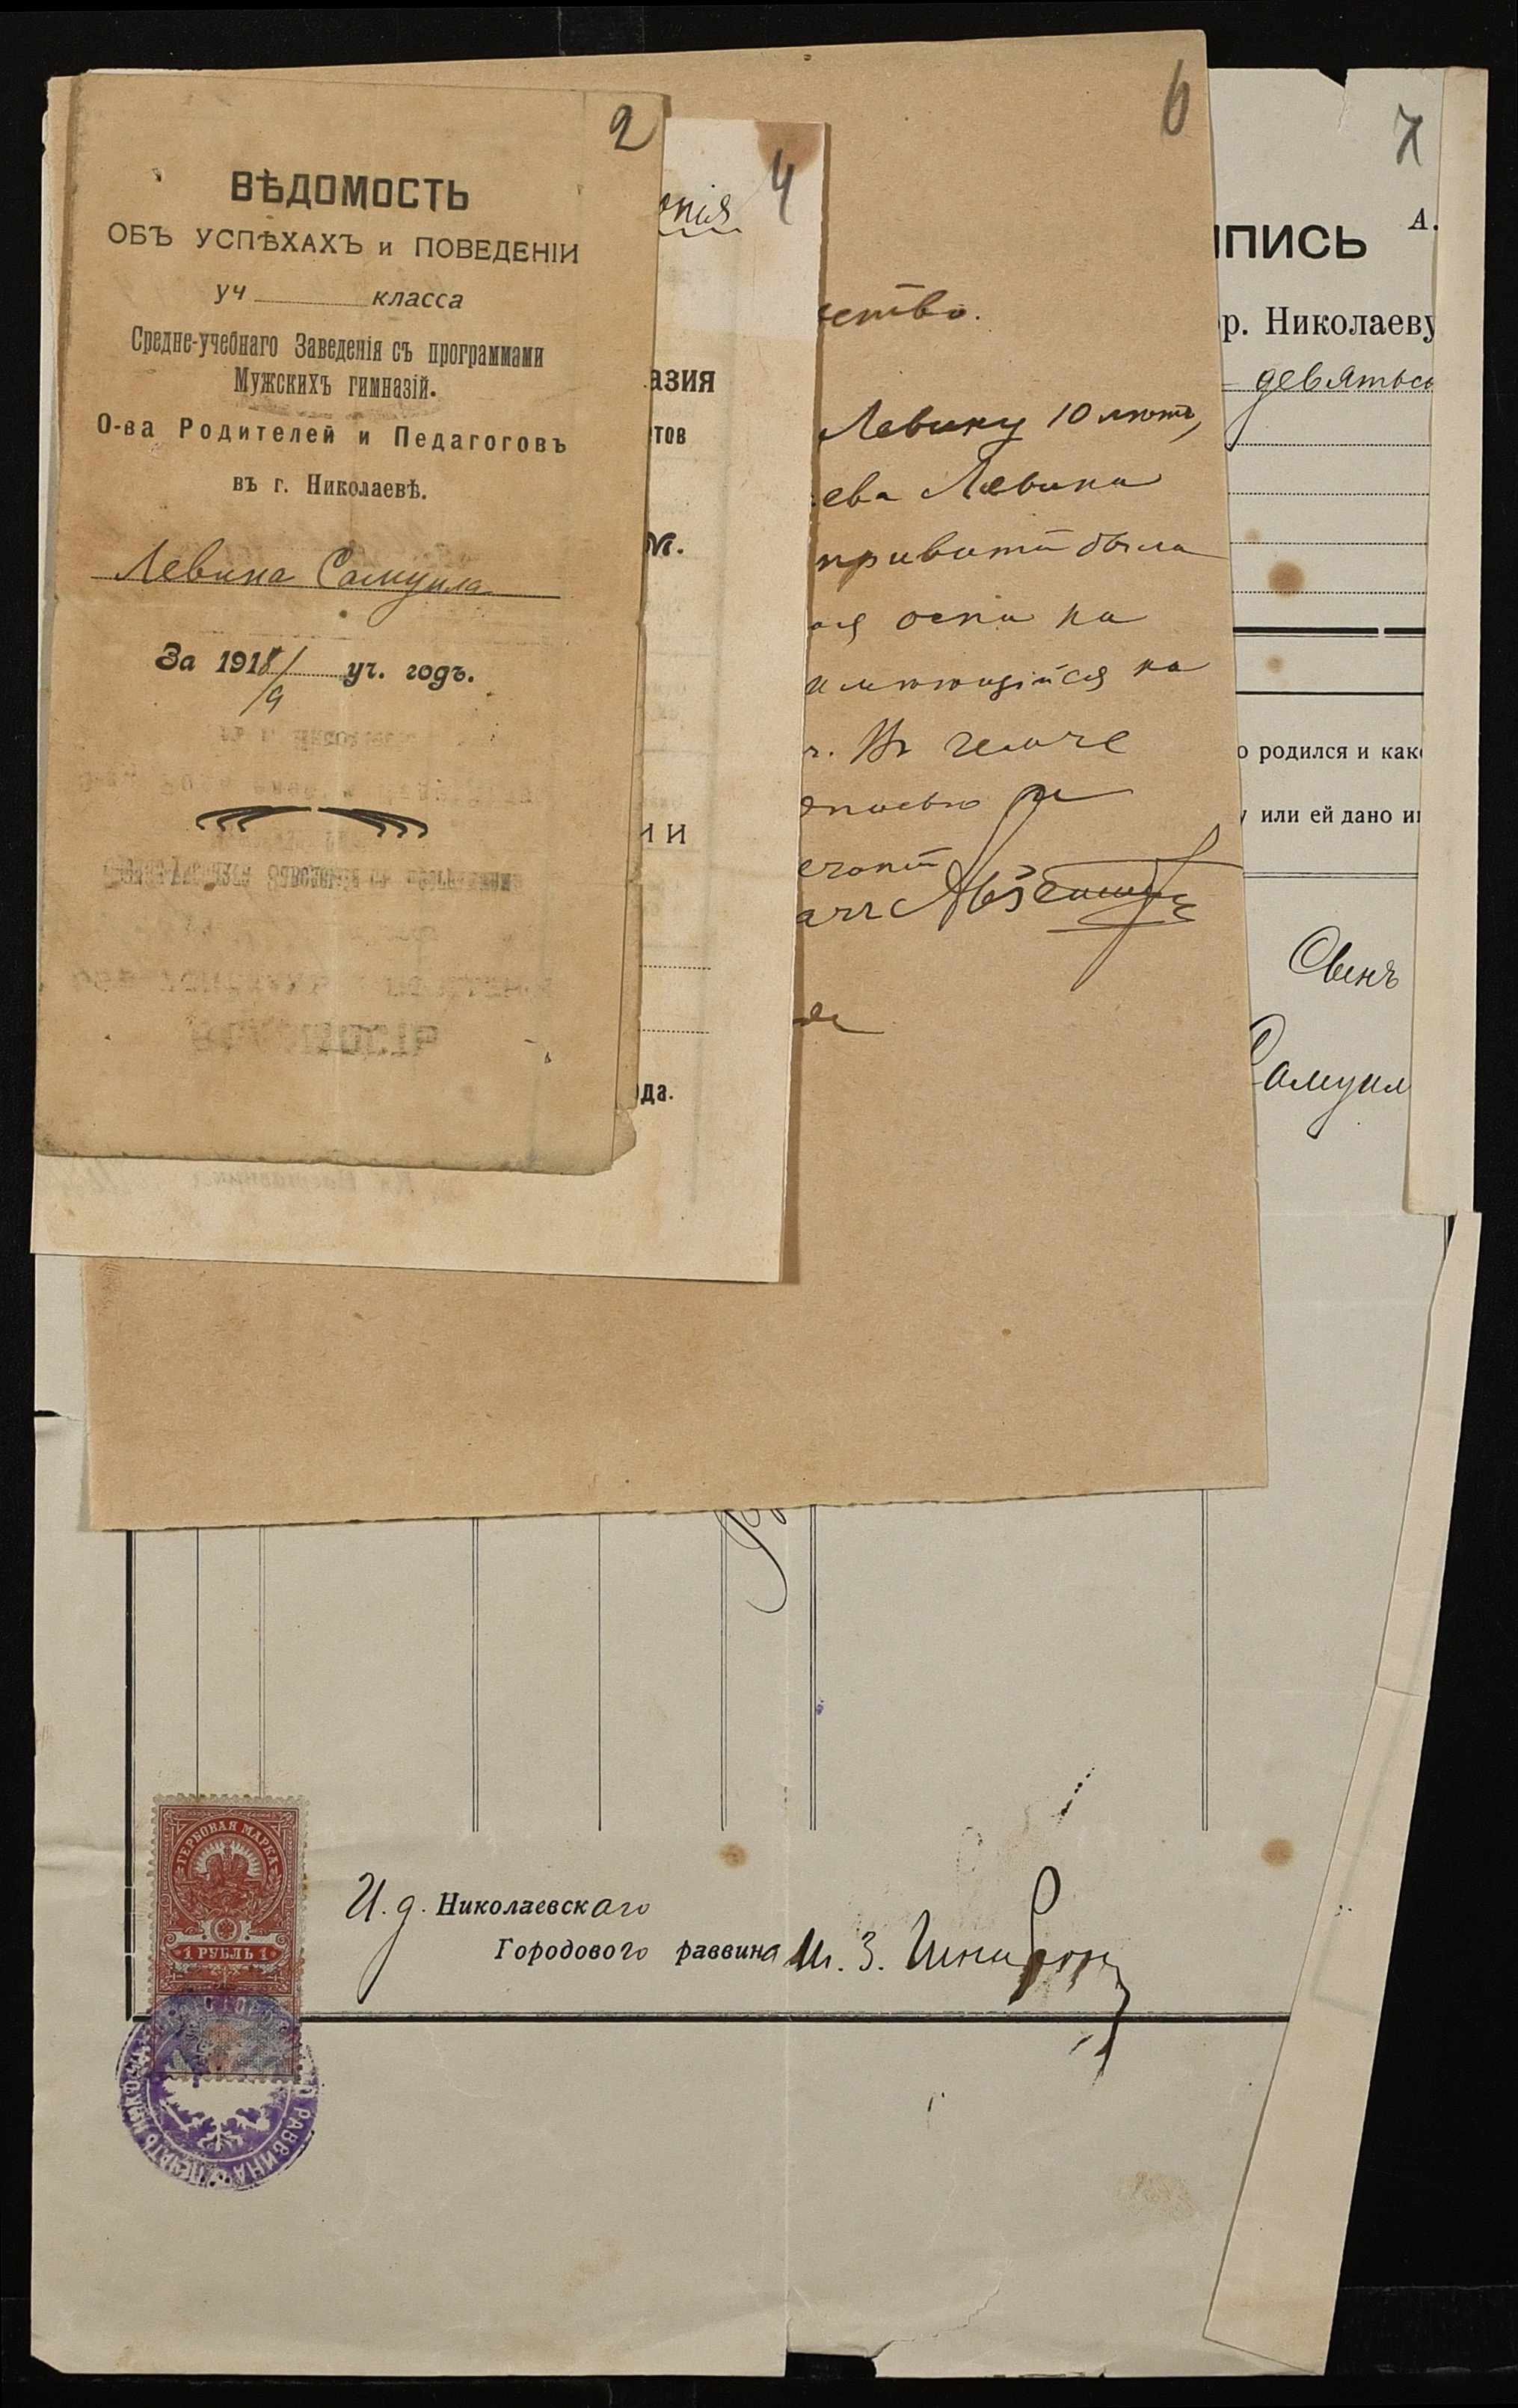 2
ВѢДОМОСТЬ
ОБЪ УСПѢХАХЪ и ПОВЕДЕНІИ
уч класса
Средне-учебнаго Заведенія съ программами
Мужскихъ гимназій.
О-ва Родителей и Педагоговъ
въ г. Николаевѣ.
Левина Самуила
За 1918/9 уч. годъ.
4
опія
азия
тов
м.
ІИ
да.
6
ство.
Левину 10 лѣтъ,
ева Левина
привита была
ая оспа на
имеющійся на
г. Въ чемъ
дписью и
ечати
ачъ
7
А.
ПИСЬ
ор. Николаеву
девятьсо
о родился и како
у или ей дано и
Сынъ
Самуил
ГЕРБОВАЯ МАРКА
1 РУБЛЬ 1
И. д. Николаевскаго
Городового раввина М. З.
РАВВИНА ПЕЧАТЬ НИКОЛА